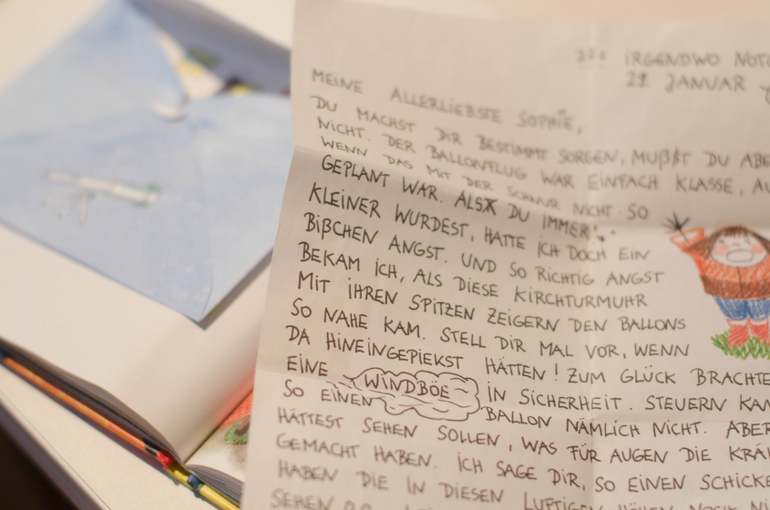 IRGENDWO
JANUAR
MEINE ALLERLIEBSTE SOPHIE,
DU MACHST DIR BESTIMMT SORGEN, MUßßT DU ABE
NICHT. DER BALLONFLUG WAR EINFACH KLASSE, AU
WENN DAS MIT DER SCHNUR NICHT SO
GEPLANT WAR. ALS DU IMMER
KLEINER WURDEST, HATTE ICH DOCH EIN
BIßCHEN ANGST. UND SO RICHTIG ANGST
BEKAM ICH, ALS DIESE KIRCHTURMUHR
MIT IHREN SPITZEN ZEIGERN DEN BALLONS
SO NAHE KAM. STELL DIR MAL VOR, WENN
DA HINEINGEPIEKST HÄTTEN! ZUM GLÜCK BRACHTE
EINE WINDBÖE IN SICHERHEIT. STEUERN KAN
SO EINEN BALLON NÄMLICH NICHT. ABER
HÄTTEST SEHEN SOLLEN, WAS FÜR AUGEN DIE KRÄH
GEMACHT HABEN. ICH SAGE DIR, SO EINEN SCHICKE
HABEN DIE IN DIESEN LUFTIGEN
SEHEN